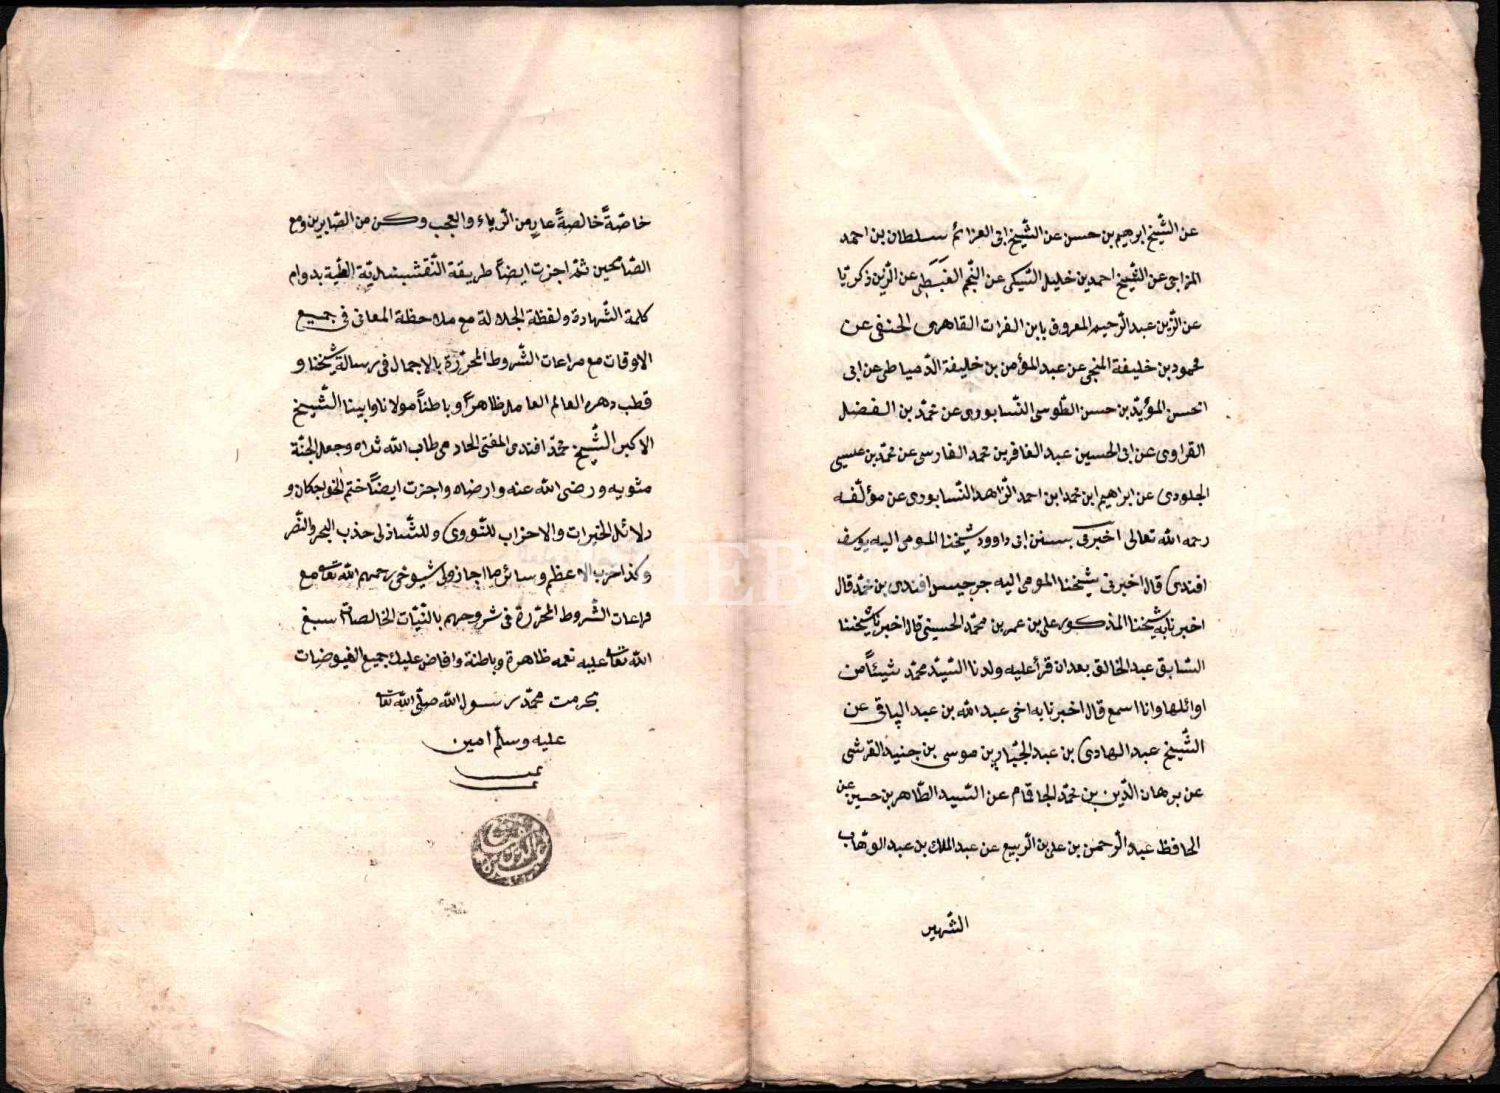 عن الشّيخ ابرهيم بن حسن عن الشّيخ ابى العزائم سلطان بن احمد
المزاجى عن الشّيخ احمد بن خليل السّبكى عن النّجم الغَيَطى عن الزّين ذكريّا
عن الزّين عبد الرّحيم المعروف بابن الفرات القاهرى الحنفى عن
محمود بن خليفة المنجى عن عبد المؤمن بن خليفة الدّمياطى عن ابى
الحسن المؤيّد بن حسن الطّوسى النّسابورى عن محمّد بن الفضل
الفراوى عن ابى الحسين عبد الغافر بن محمد الفارسى عن محمّد بن عيسى
الجلودى عن ابراهيم ابن محمد ابن احمد الزّاهد النّسابورى عن مؤلّفه
رحمه الله تعالى اخبرنى بسنن ابى داوود شيخنا المومى اليه يوسف
افندى قال اخبرنى شيخنا المومى اليه جرجيس افندى بن محمّد قال
اخبرنا به شيخنا المذكور على بن عمر بن محمّد الحسينى قال اخبرنا شيخنا
السّابق عبد الخالق بعد ان قرأ عليه ولدنا السّيّد محمّد شيئاً من
اوائلها وانا اسمع قال اخبرنا به اخى عبد الله بن عبد الباقى عن
الشّيخ عبد الهادى بن عبد الجبّار بن موسى بن جنيد القرشى
عن برهان الدّين بن محمّد الجاقام عن السّيد الطّاهر بن حسين عن
الحافظ عبد الرّحمن بن على بن الرّبيع عن عبد الملك بن عبد الوهّاب
الشّهير
خاصّةً خالصةً عارٍ من الرّياء والعجب وكن من الصّابرين ومع
الصّالحين ثمّ اجزت ايضاً طريقة النّقشبنديّة العليّة بدوام
كلمة الشّهادة ولفظة الجلالة مع ملاحظة المعانى فى جميع
الاوقات مع مراعات الشّروط المحرّرة بالاجمال فى رسالة شيخنا و
قطب دهره العالم العامل ظاهراً وباطناً مولانا وابينا الشّيخ
الاكبر الشّيخ محمّد افندى المفتى الخادمى طاب الله ثراه وجعل الجنّة
مثويه ورضى الله عنه وارضاه واجزت ايضاً ختم الخوجكان و
دلائل الخيرات والاحزاب للنّووى وللشّاذلى حذب البحر والنّصر
وكذا حزب الاعظم وسائر ما اجازولى شيوخى رحمهم الله تعالى مع
مراعات الشّروط المحرّرة فى شروحهم بالنّيّات الخالصات اسبغ
الله تعالى عليه نعمه ظاهرة وباطنة وافاض عليك جميع الفيوضات
بحرمت محمّد رسول الله صلّى الله تعالى
عليه وسلّم امين
تمت